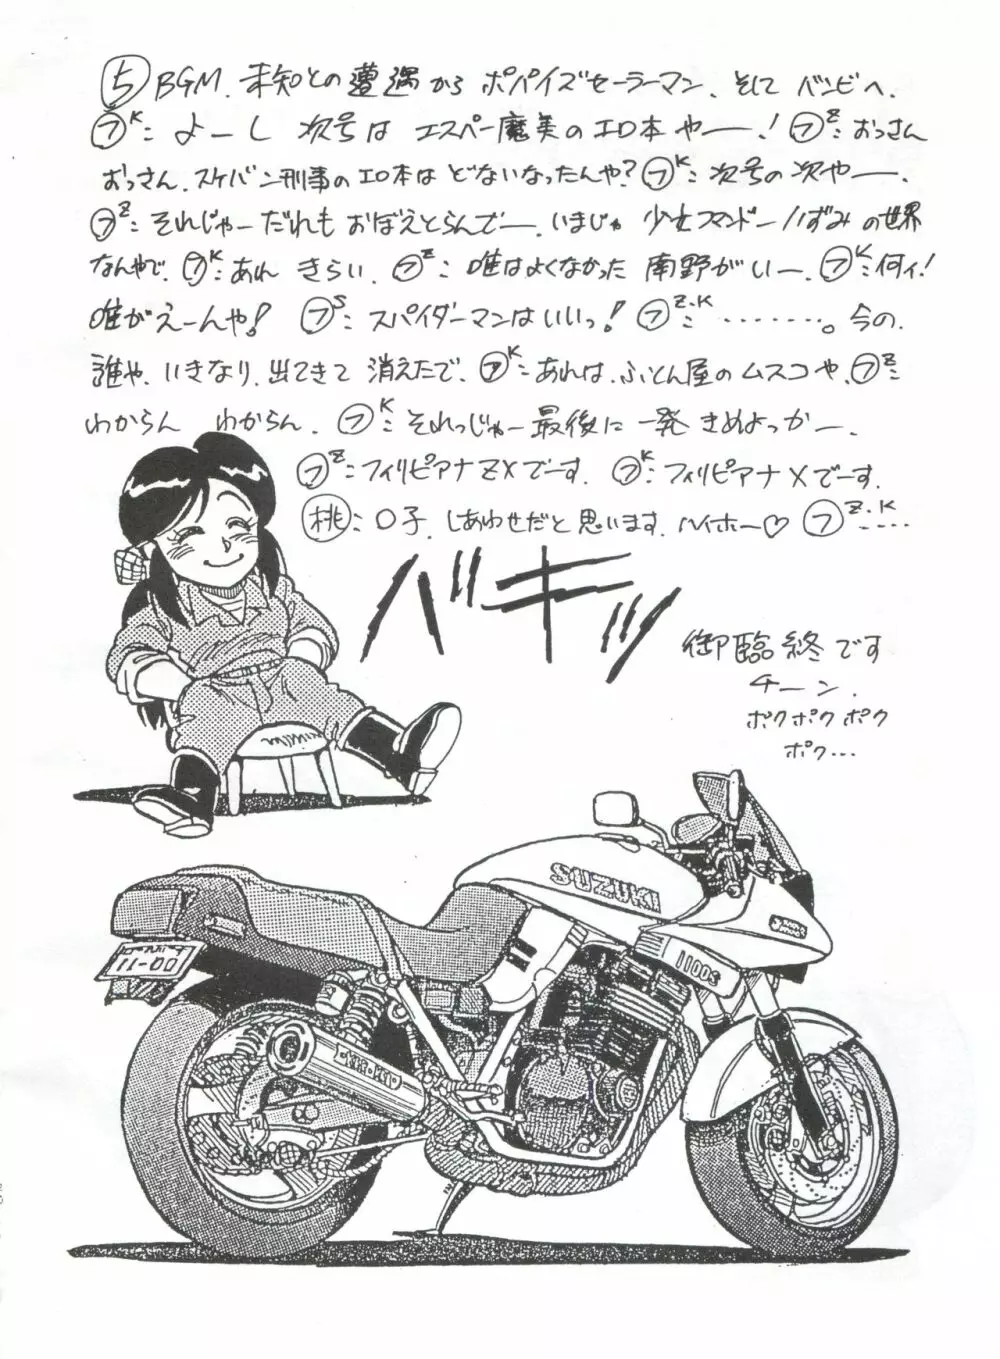 ⑤BGM. 未知との遭遇から ポパイズセーラーマン、そして バンビへ.
㋫K: よーし 次号は エスパー魔美のエロ本やー! ㋫Z: おっさん
おっさん. スケバン刑事のエロ本は どないなったんや? ㋫K: 次号の次やー.
㋫Z: それじゃーだれも おぼえとらんでー. いまじゃ 少女コマンドーいずみの世界
なんやで. ㋫K: あれ きらい. ㋫Z: 唯はよくなかった 南野がいー. ㋫K: 何ィ!
唯がえーんや! ㋫S: スパイダーマンはいいっ! ㋫Z.K: ・・・・・・・・。今の.
誰や. いきなり. 出てきて 消えたで. ㋫K: あれは. ふとん屋のムスコや. ㋫Z:
わからん わからん. ㋫K: それっじゃー最後に 一発 きめよっかー.
㋫Z: フィリピアナZXでーす. ㋫K: フィリピアナXでーす.
桃: ○子. しあわせだと思います. ハイホー♡ ㋫Z.K ‥‥
バキッ
御臨終です
チーン.
ポクポクポク
ポク…
SUZUKI
1100S
00-11